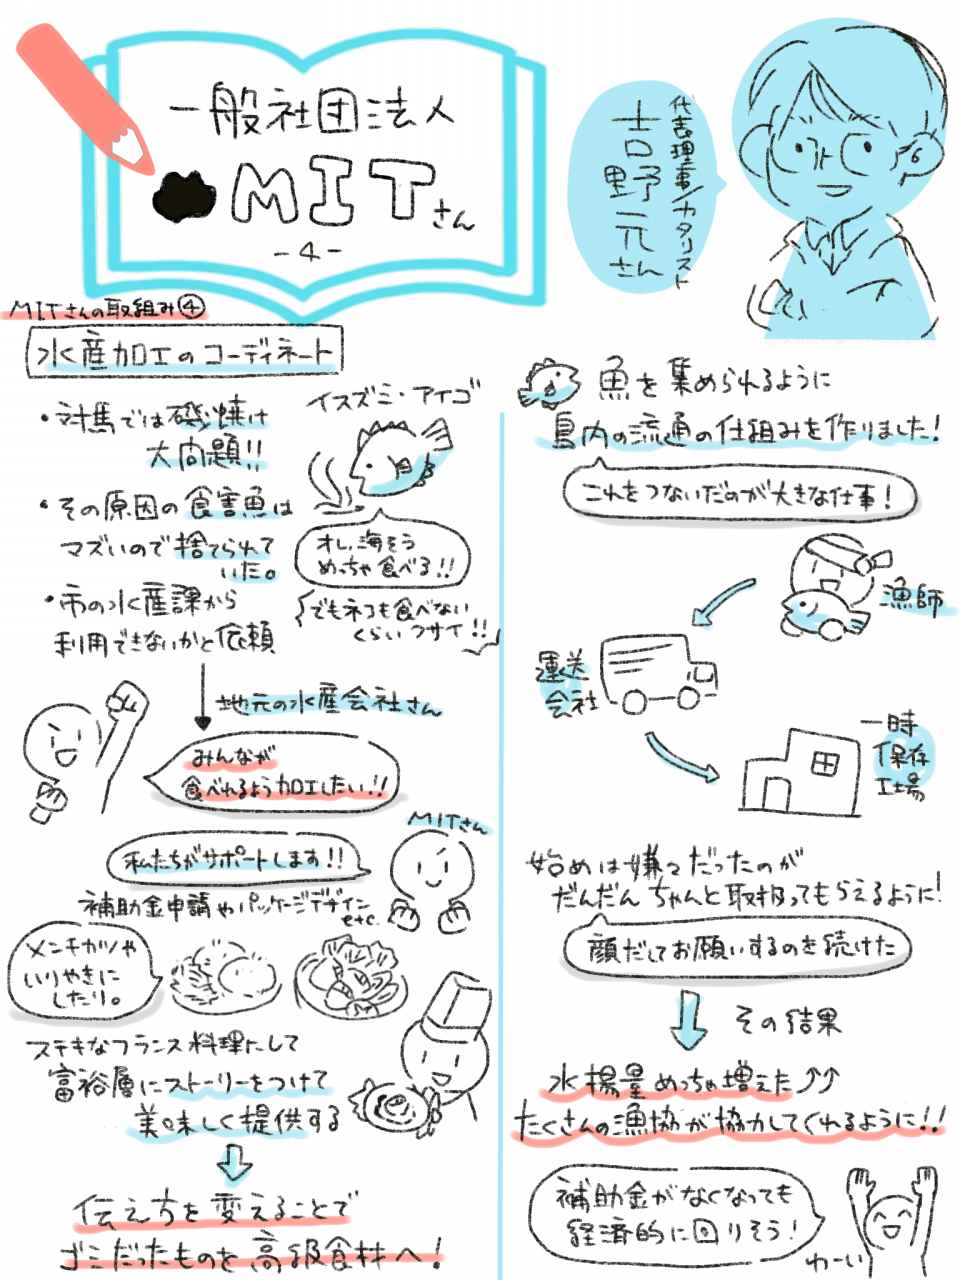 一般社団法人
MITさん
-4-
代表理事/カタリスト
吉野 元さん
MITさんの取組み④
水産加工のコーディネート
・対馬では磯焼け
大問題!!
・その原因の食害魚は
マズいので捨てられて
いた。
・市の水産課から
利用できないかと依頼
イスズミ・アイゴ
オレ、海そう
めっちゃ食べる!!
でもネコも食べない
くらいクサイ!!
地元の水産会社さん
みんなが
食べれるよう加工したい!!
MITさん
私たちがサポートします!!
補助金申請やパッケージデザイン
etc.
メンチカツや
いりやきに
したり。
ステキなフランス料理にして
富裕層にストーリーをつけて
美味しく提供する
伝え方を変えることで
ゴミだったものを高級食材へ!
魚を集められるように
島内の流通の仕組みを作りました!
これをつないだのが大きな仕事!
漁師
運送
会社
一時
保存
工場
始めは嫌々だったのが
だんだんちゃんと取扱ってもらえるように!
顔だしてお願いするのを続けた
その結果
水揚量めっちゃ増えた↑↑
たくさんの漁協が協力してくれるように!!
補助金がなくなっても
経済的に回りそう!
わーい